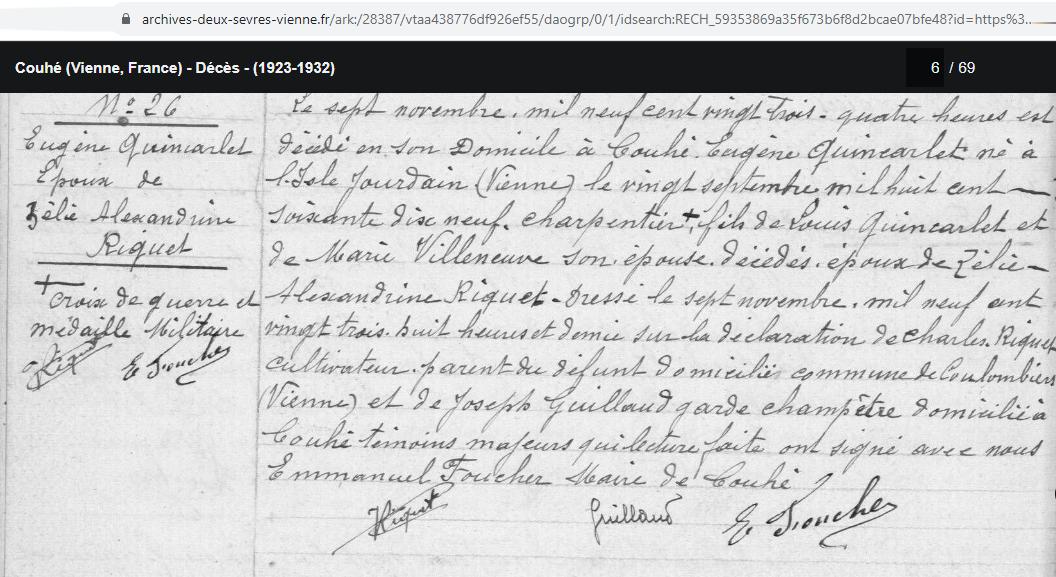 archives-deux-sevres-vienne.fr/ark:/28387/vtaa438776df926ef55/daogrp/0/1/idsearch:RECH_59353869a35f673b6f8d2bcae07bfe48?id=https%3...
Couhé (Vienne, France) - Décès - (1923-1932)
6 / 69
N° 26
Eugène Quincarlet
Epoux de
Zélie Alexandrine
Riquet
+ croix de guerre et
médaille Militaire
Riquet E Foucher
Le sept novembre, mil neuf cent vingt trois - quatre heures est
décédé en son Domicile à Couhé. Eugène Quincarlet né à
l'Isle Jourdain (Vienne) le vingt septembre mil huit cent —
soixante dix neuf. charpentier +, fils de Louis Quincarlet et
de Marie Villeneuve son épouse. décédés. époux de Zélie —
Alexandrine Riquet - Dressé le sept novembre, mil neuf cent
vingt trois. huit heures et demie sur la déclaration de Charles. Riquet
cultivateur. parent du défunt domicilié commune de Coulombiers
(Vienne) et de Joseph Guillaud garde champêtre domicilié à
Couhé témoins majeurs qui lecture faite ont signé avec nous
Emmanuel Foucher Maire de Couhé
Riquet Guillaud E Foucher